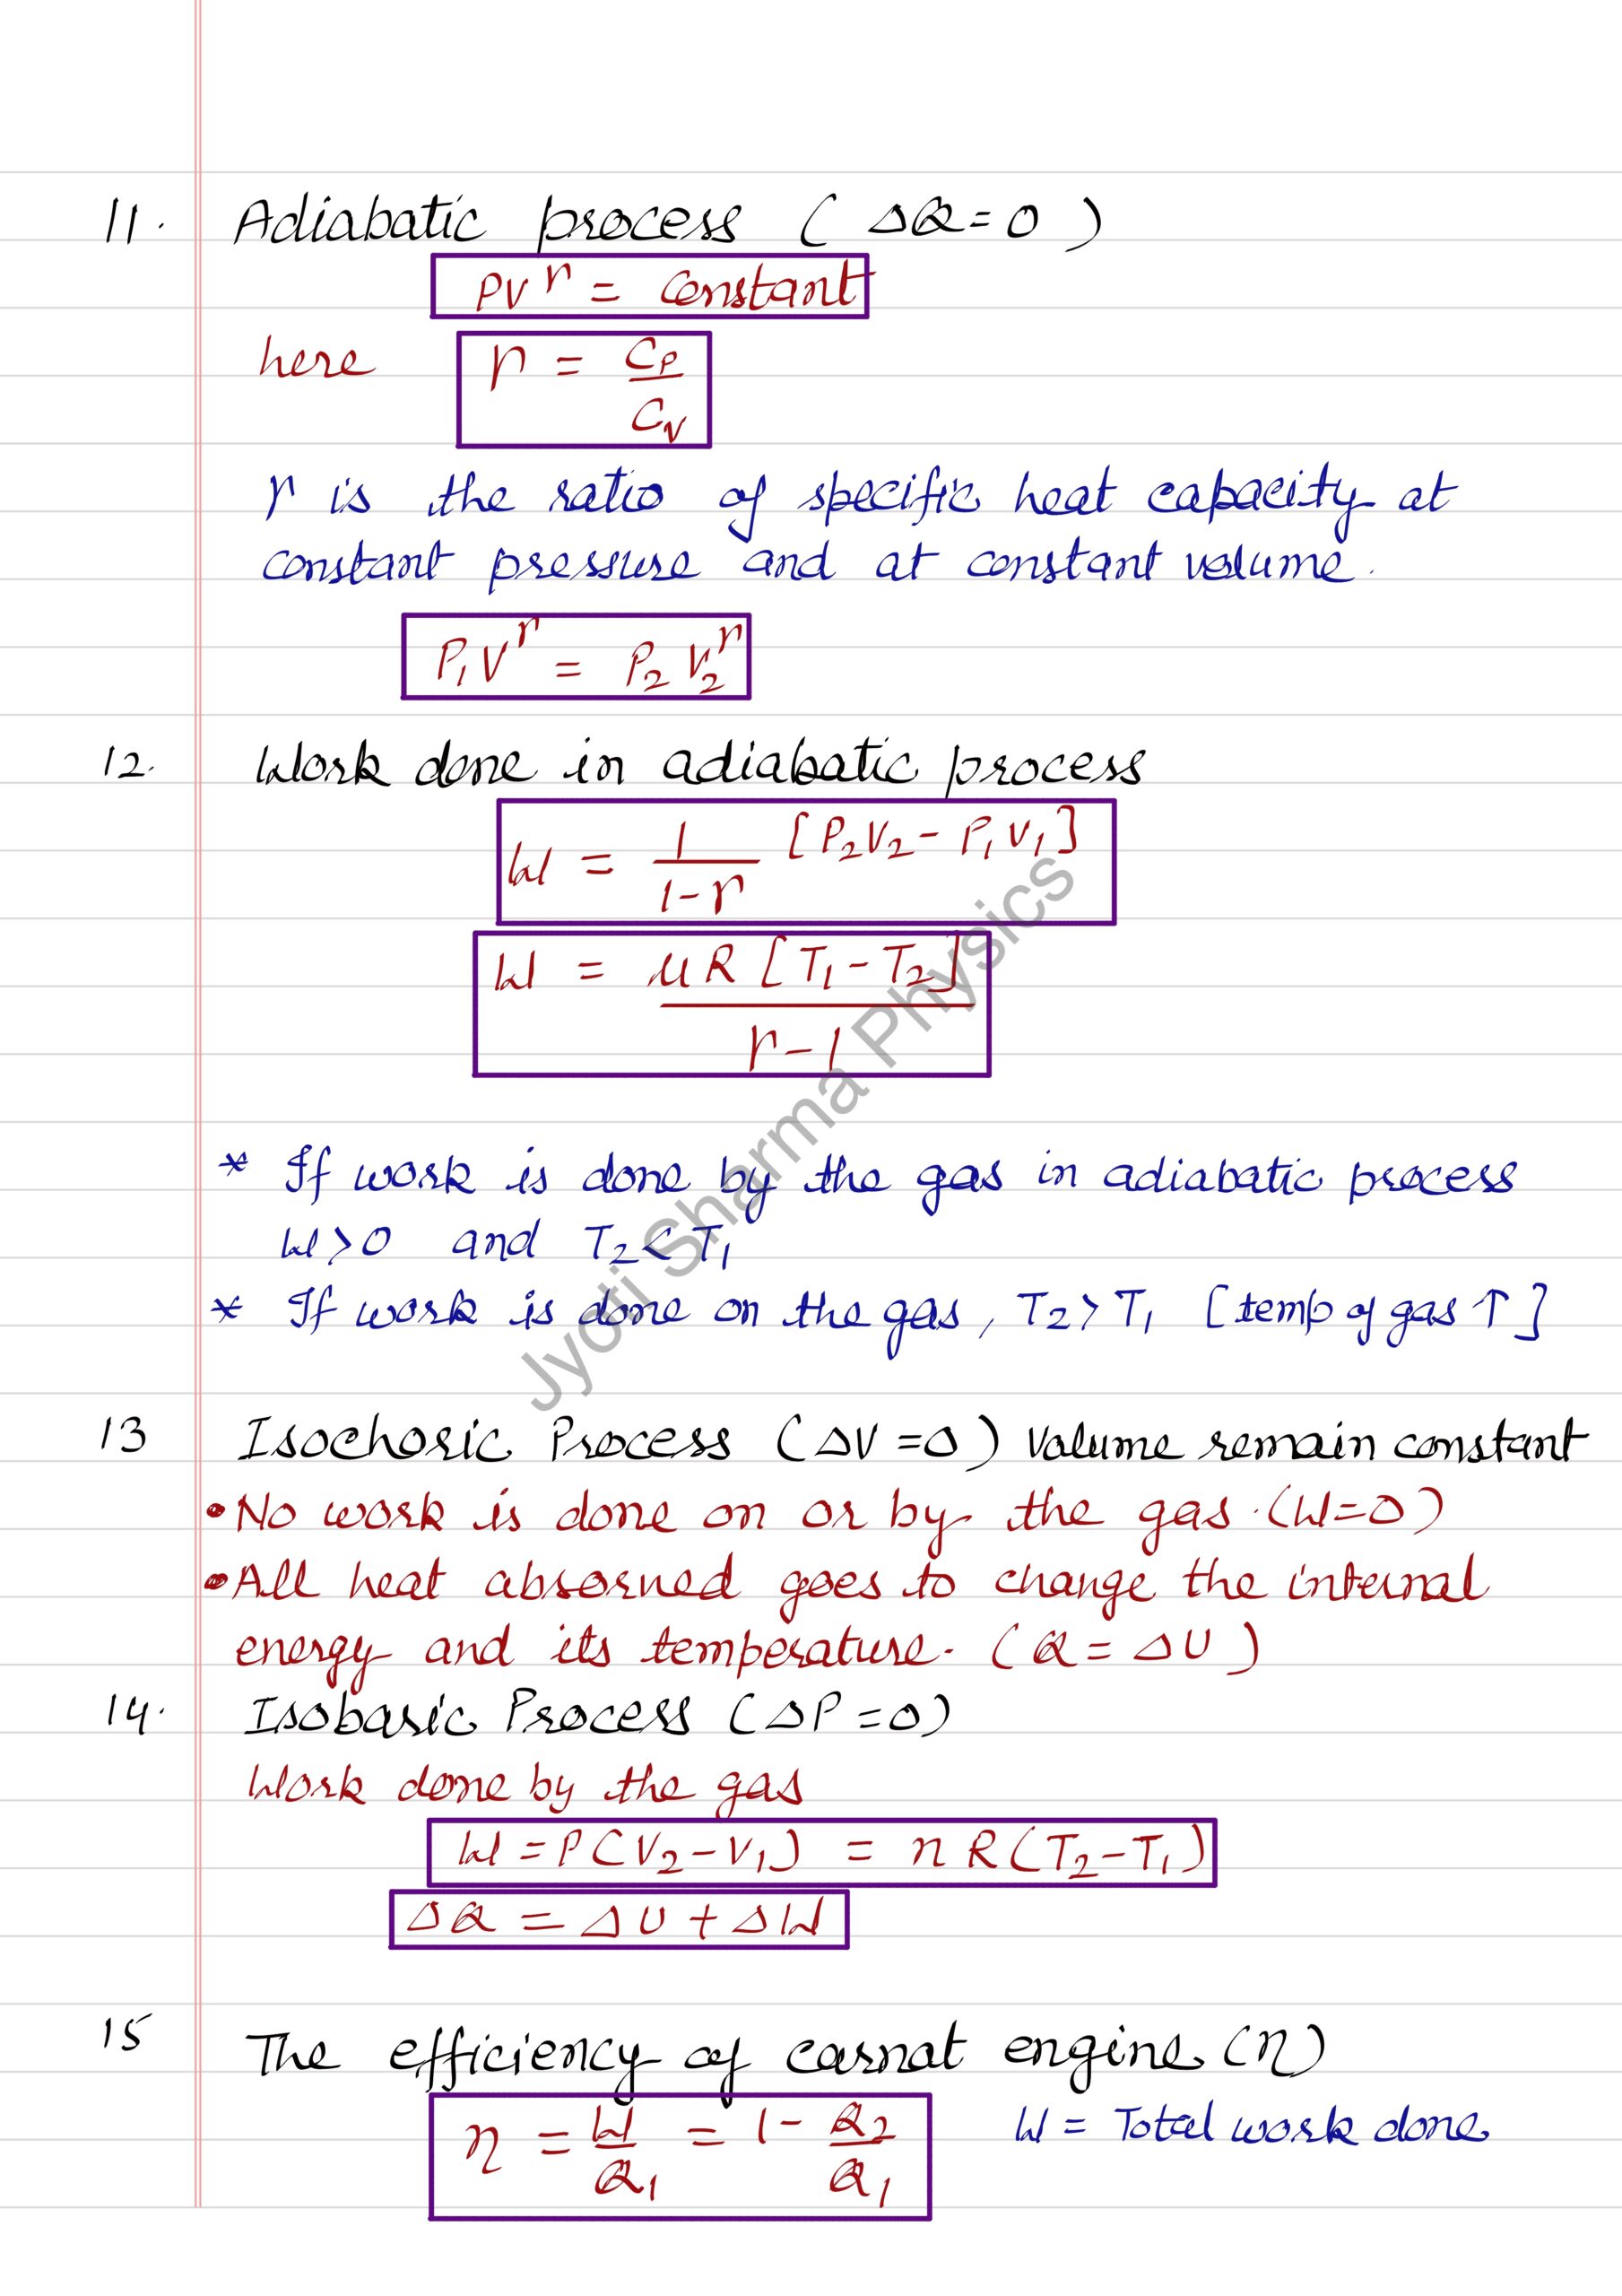 11. Adiabatic process ( ΔQ = 0 )
PV^r = Constant
here r = Cp/Cv
r is the ratio of specific heat capacity at
constant pressure and at constant volume.
P₁V^r = P₂V₂^r
12. Work done in adiabatic process
W = 1/(1-r) [P₂V₂ - P₁V₁]
W = μR[T₁-T₂]/(r-1)
* If work is done by the gas in adiabatic process
W>0 and T₂<T₁
* If work is done on the gas, T₂>T₁ [temp of gas ↑]
13 Isochoric Process (ΔV=0) Volume remain constant
•No work is done on or by the gas. (W=0)
•All heat absorned goes to change the internal
energy and its temperature. (Q = ΔU)
14. Isobaric Process (ΔP=0)
Work done by the gas
W = P(V₂-V₁) = nR(T₂-T₁)
ΔQ = ΔU + ΔW
15 The efficiency of carnot engine (η)
η = W/Q₁ = 1 - Q₂/Q₁ W = Total work done
Jyoti Sharma Physics